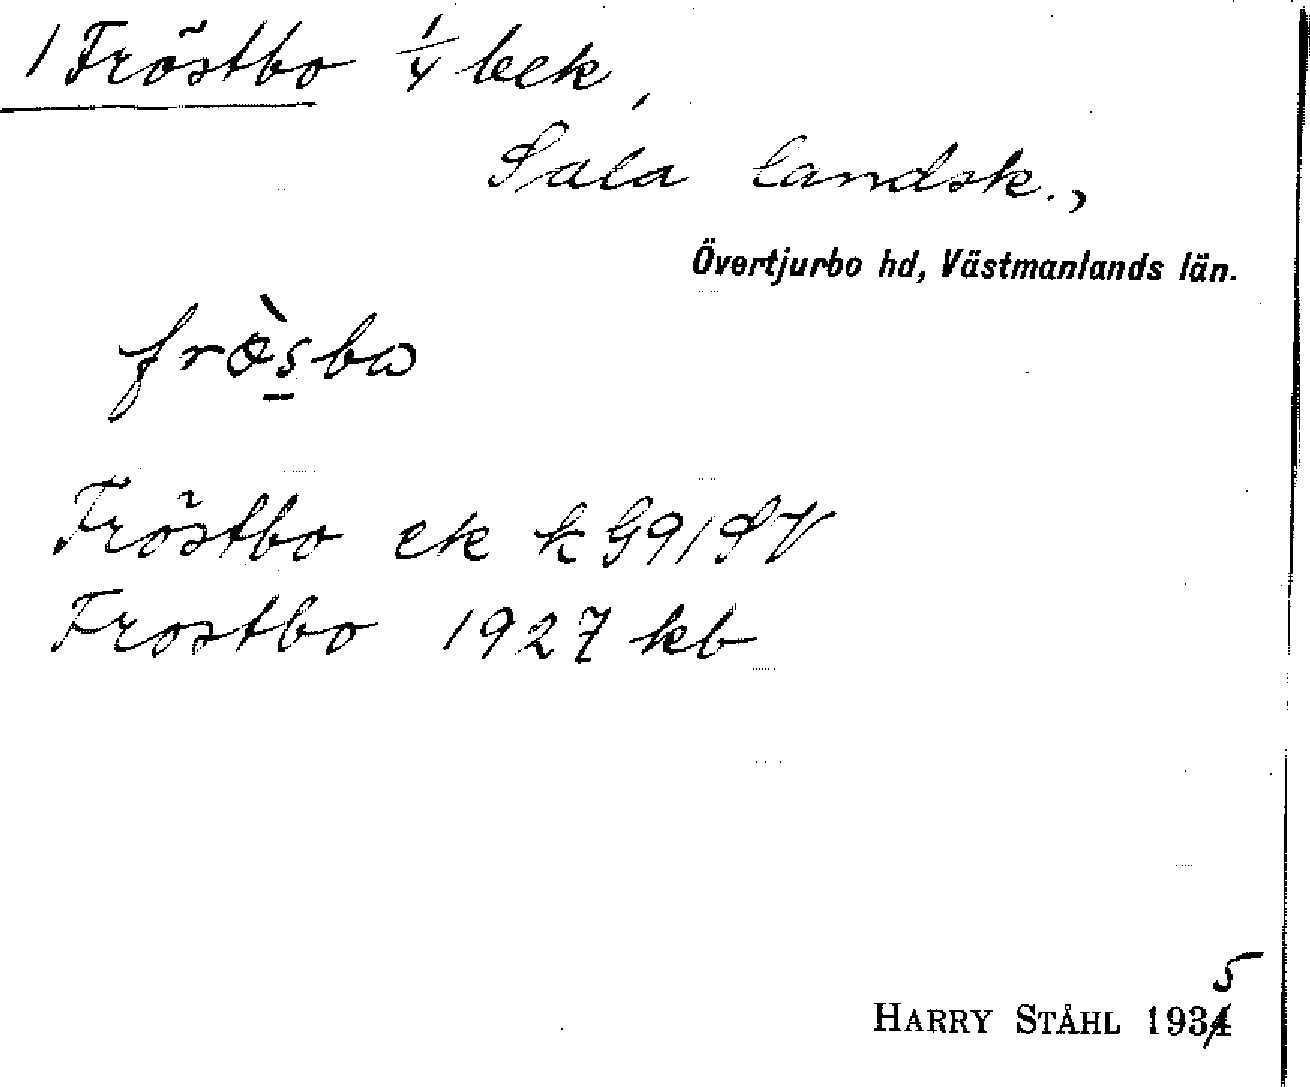 1 Fröstbo 1/4 bek,
Sala landsk.,
Övertjurbo hd, Västmanlands län.
frö̀sbω
Fröstbo ek k G91SV
Frostbo 1927 kb
5
HARRY STÅHL 1934